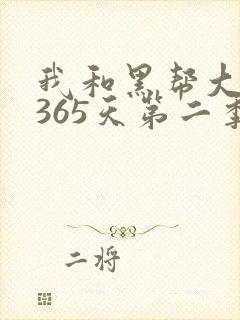 我和黑帮大
365天第二季
二将